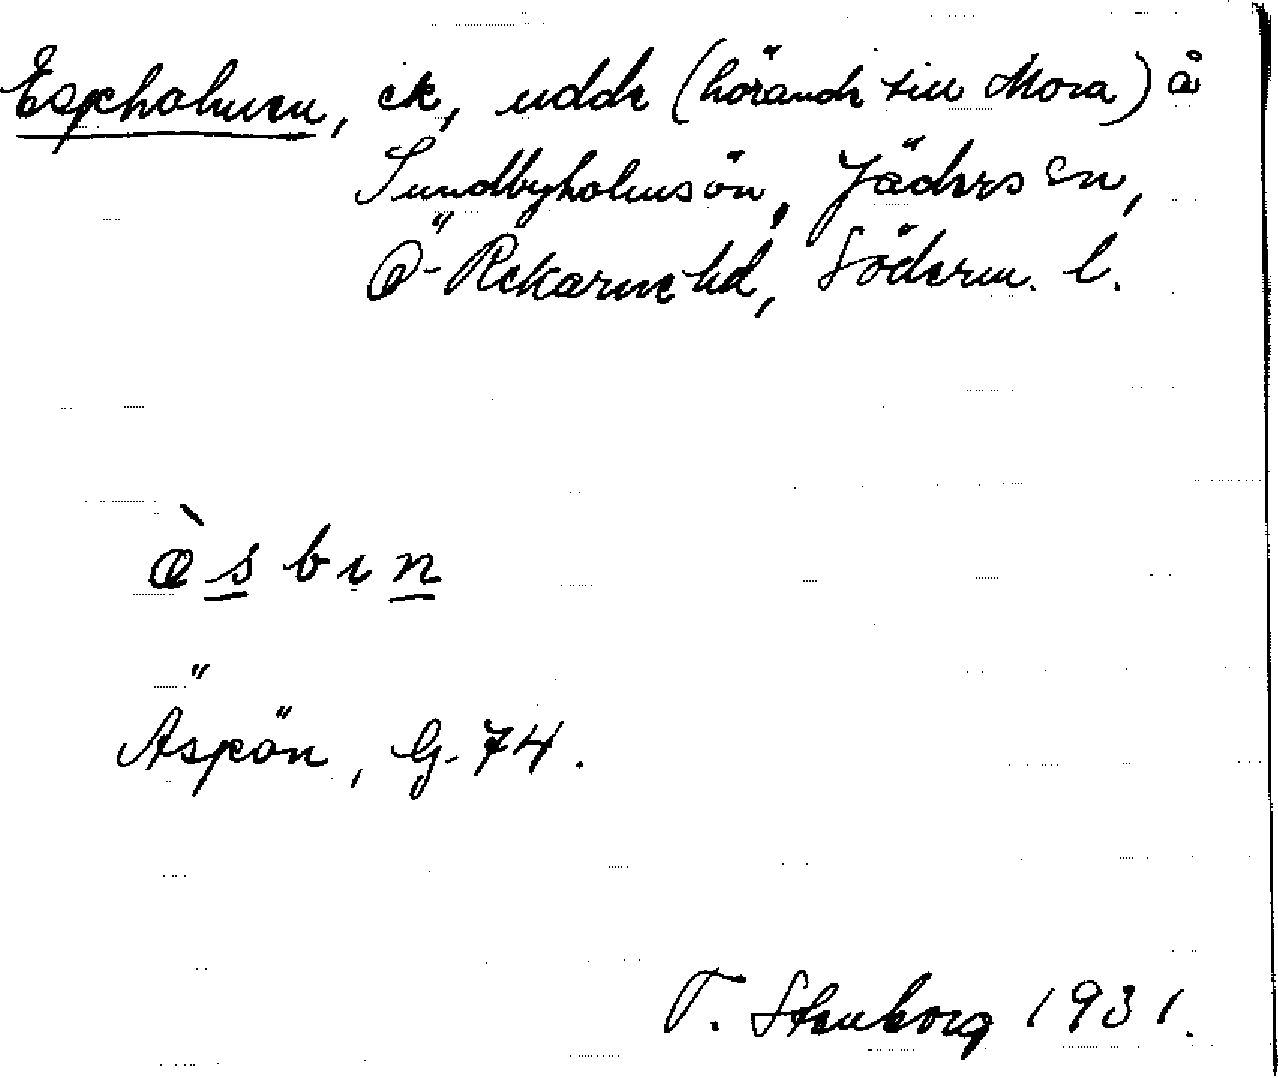 Espeholmen, ek, udde (hörande till Mora) å
Sundbyholmsön, Jäders sn,
Ö-Rekarne hd, Söderm. l.
œ̀sbın
Äspön, G. 74.
T. Stenborg 1931.